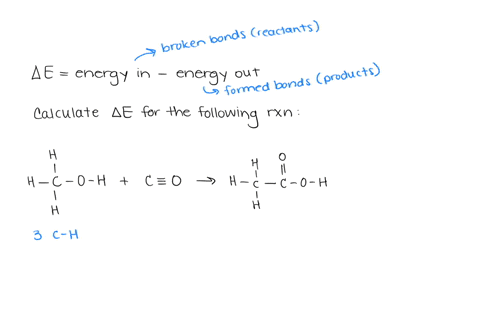 broken bonds (reactants)
ΔE = energy in - energy out
formed bonds (products)
Calculate ΔE for the following rxn:
H H O
H-C-O-H + C≡O → H-C-C-O-H
H H
3 C-H